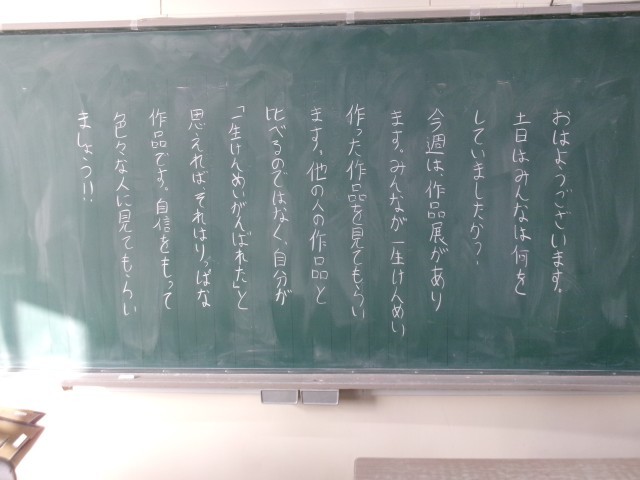 おはようございます。
土日はみんなは何を
していましたか?
今週は、作品展があり
ます。みんなが一生けんめい
作った作品を見てもらい
ます。他の人の作品と
比べるのではなく、自分が
「一生けんめいがんばれた」と
思えれば、それはりっぱな
作品です。自信をもって
色々な人に見てもらい
ましょう!!